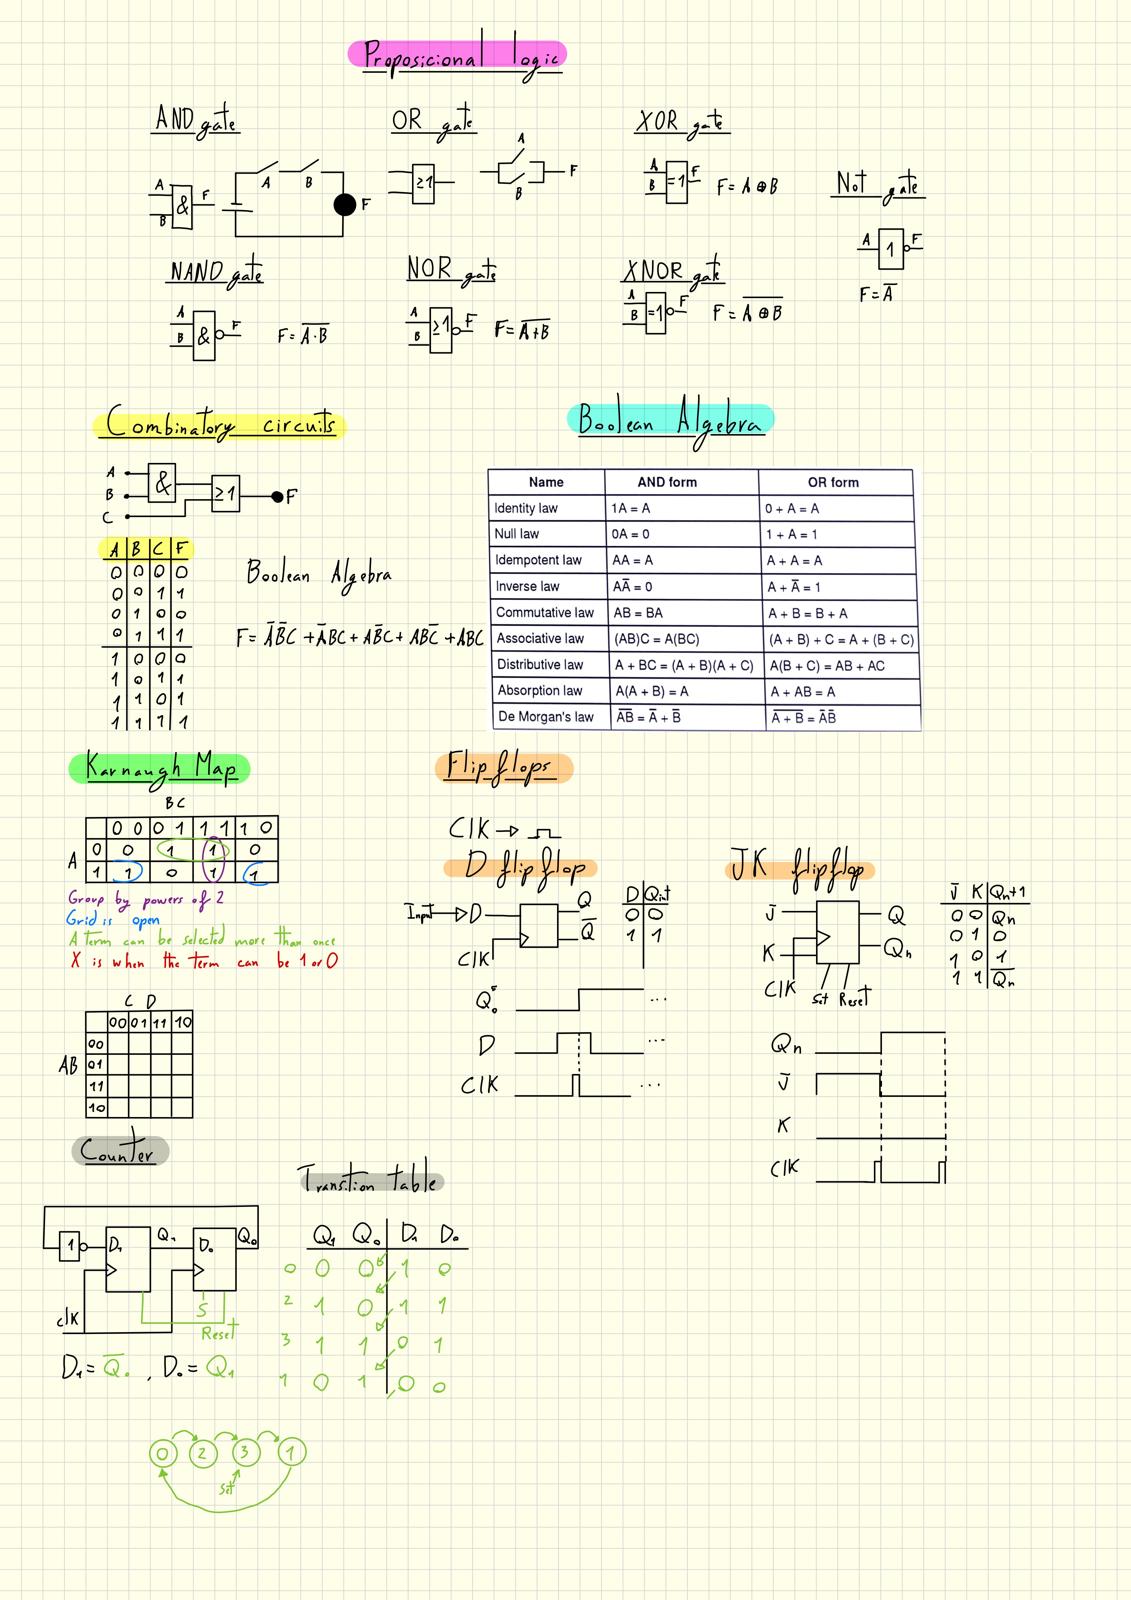 Proposicional logic
AND gate
OR gate
XOR gate
Not gate
A
B
&
F
A B
F
≥1
A
B
F
A
B
=1
F
F = A ⊕ B
A
1
F
F = A̅
NAND gate
NOR gate
XNOR gate
A
B
&
F
F = A̅·̅B̅
A
B
≥1
F
F = A̅+̅B̅
A
B
=1
F
F = A̅ ̅⊕̅ ̅B̅
Combinatory circuits
Boolean Algebra
A
B
C
&
≥1
F
A B C F
0 0 0 0
0 0 1 1
0 1 0 0
0 1 1 1
1 0 0 0
1 0 1 1
1 1 0 1
1 1 1 1
Boolean Algebra
F = A̅B̅C + A̅BC + AB̅C + ABC̅ + ABC
Name AND form OR form
Identity law 1A = A 0 + A = A
Null law 0A = 0 1 + A = 1
Idempotent law AA = A A + A = A
Inverse law AA̅ = 0 A + A̅ = 1
Commutative law AB = BA A + B = B + A
Associative law (AB)C = A(BC) (A + B) + C = A + (B + C)
Distributive law A + BC = (A + B)(A + C) A(B + C) = AB + AC
Absorption law A(A + B) = A A + AB = A
De Morgan's law A̅B̅ = A̅ + B̅ A̅ ̅+̅ ̅B̅ = A̅B̅
Karnaugh Map
BC
00 01 11 10
A
0 0 1 1 0
1 1 0 1 1
Group by powers of 2
Grid is open
A term can be selected more than once
X is when the term can be 1 or 0
C D
00 01 11 10
AB
00
01
11
10
Flipflops
Clk →
D flipflop
Input → D
Q
Q̅
Clk
0 0
1 1
D ...
Clk ...
JK flipflop
J
K
Clk
Q
Qn
Set Reset
J K Qn+1
0 0 Qn
0 1 0
1 0 1
1 1 Q̅n̅
Qn
J
K
Clk
Counter
Transition table
1
D₁
Q₁
D₀
Q₀
clk
S
Reset
D₁ = Q̅₀ , D₀ = Q₁
Q₁ Q₀ D₁ D₀
0 0 0 1 0
2 1 0 1 1
3 1 1 0 1
1 0 1 0 0
0 2 3 1
Set